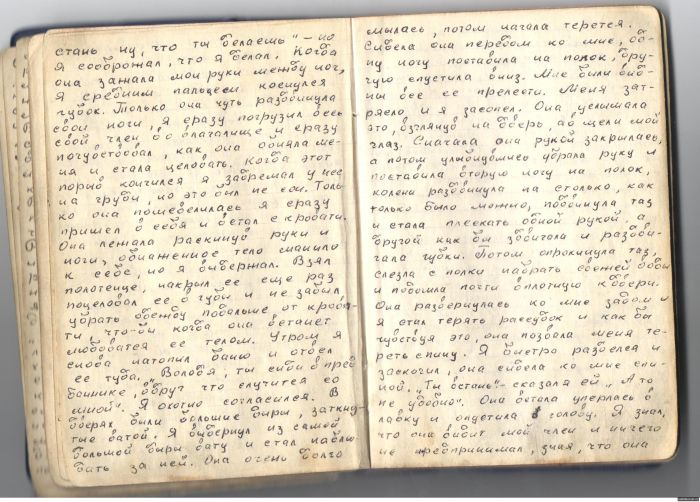 стань ну, что ты делаешь" – но
я сооброжал, что я делал. Когда
она зажала мои руки между ног,
я средним пальцем коснулся
губок. Только она чуть раздвинула
свои ноги, я сразу погрузил весь
свой член во влагалище и сразу
почувствовал, как она обняла ме-
ня и стала целовать. Когда этот
порыв кончился я задремал у нее
на груди, но это был не сон. Толь-
ко она пошевелилась я сразу
пришел в себя и встал с кровати.
Она лежала раскинув руки и
ноги, обнаженное тело манило
к себе, но я выдержал. Взял
полотенце, накрыл ее еще раз
поцеловал ее в губы и не забыл
убрать одежду подальше от крова-
ти что-бы когда она встанет
любоватся ее телом. Утром я
снова натопил баню и отвел
ее туда. Володя, ты сиди в пред
баннике, вдруг что случится со
мной". Я охотно согласился. В
дверях были большие дыры, заткну-
тые ватой. Я выдернул из самой
большой дыры вату и стал наблю-
дать за ней. Она очень долго
мылась, потом начала терется.
Сидела она передом ко мне, од-
ну ногу поставила на полок, дру-
гую спустила вниз. Мне были вид-
ны все ее прелести. Меня зат-
рясло и я засопел. Она услышала
это, взглянув на дверь, а в щели мой
глаз. Сначала она рукой закрылась,
а потом улыбнувшись убрала руку и
поставила вторую ногу на полок,
колени раздвинула на столько, как
только было можно, подвинула таз
и стала плескать одной рукой, а
другой как бы здвигала и раздви-
гала губки. Потом опрокинула таз,
слезла с полки набрать свежей воды
и подошла почти вплотную к двери.
Она развернулась ко мне задом и
я стал терять рассудок и как бы
чувствуя это, она позвала меня те-
реть спину. Я быстро разделся и
заскочил, она сидела ко мне спи-
ной. „Ты встань" – сказал я ей „А то
не удобно". Она встала уперлась в
лавку и опустила голову. Я знал,
что она видит мой член и ничего
не предпринимал, зная, что она